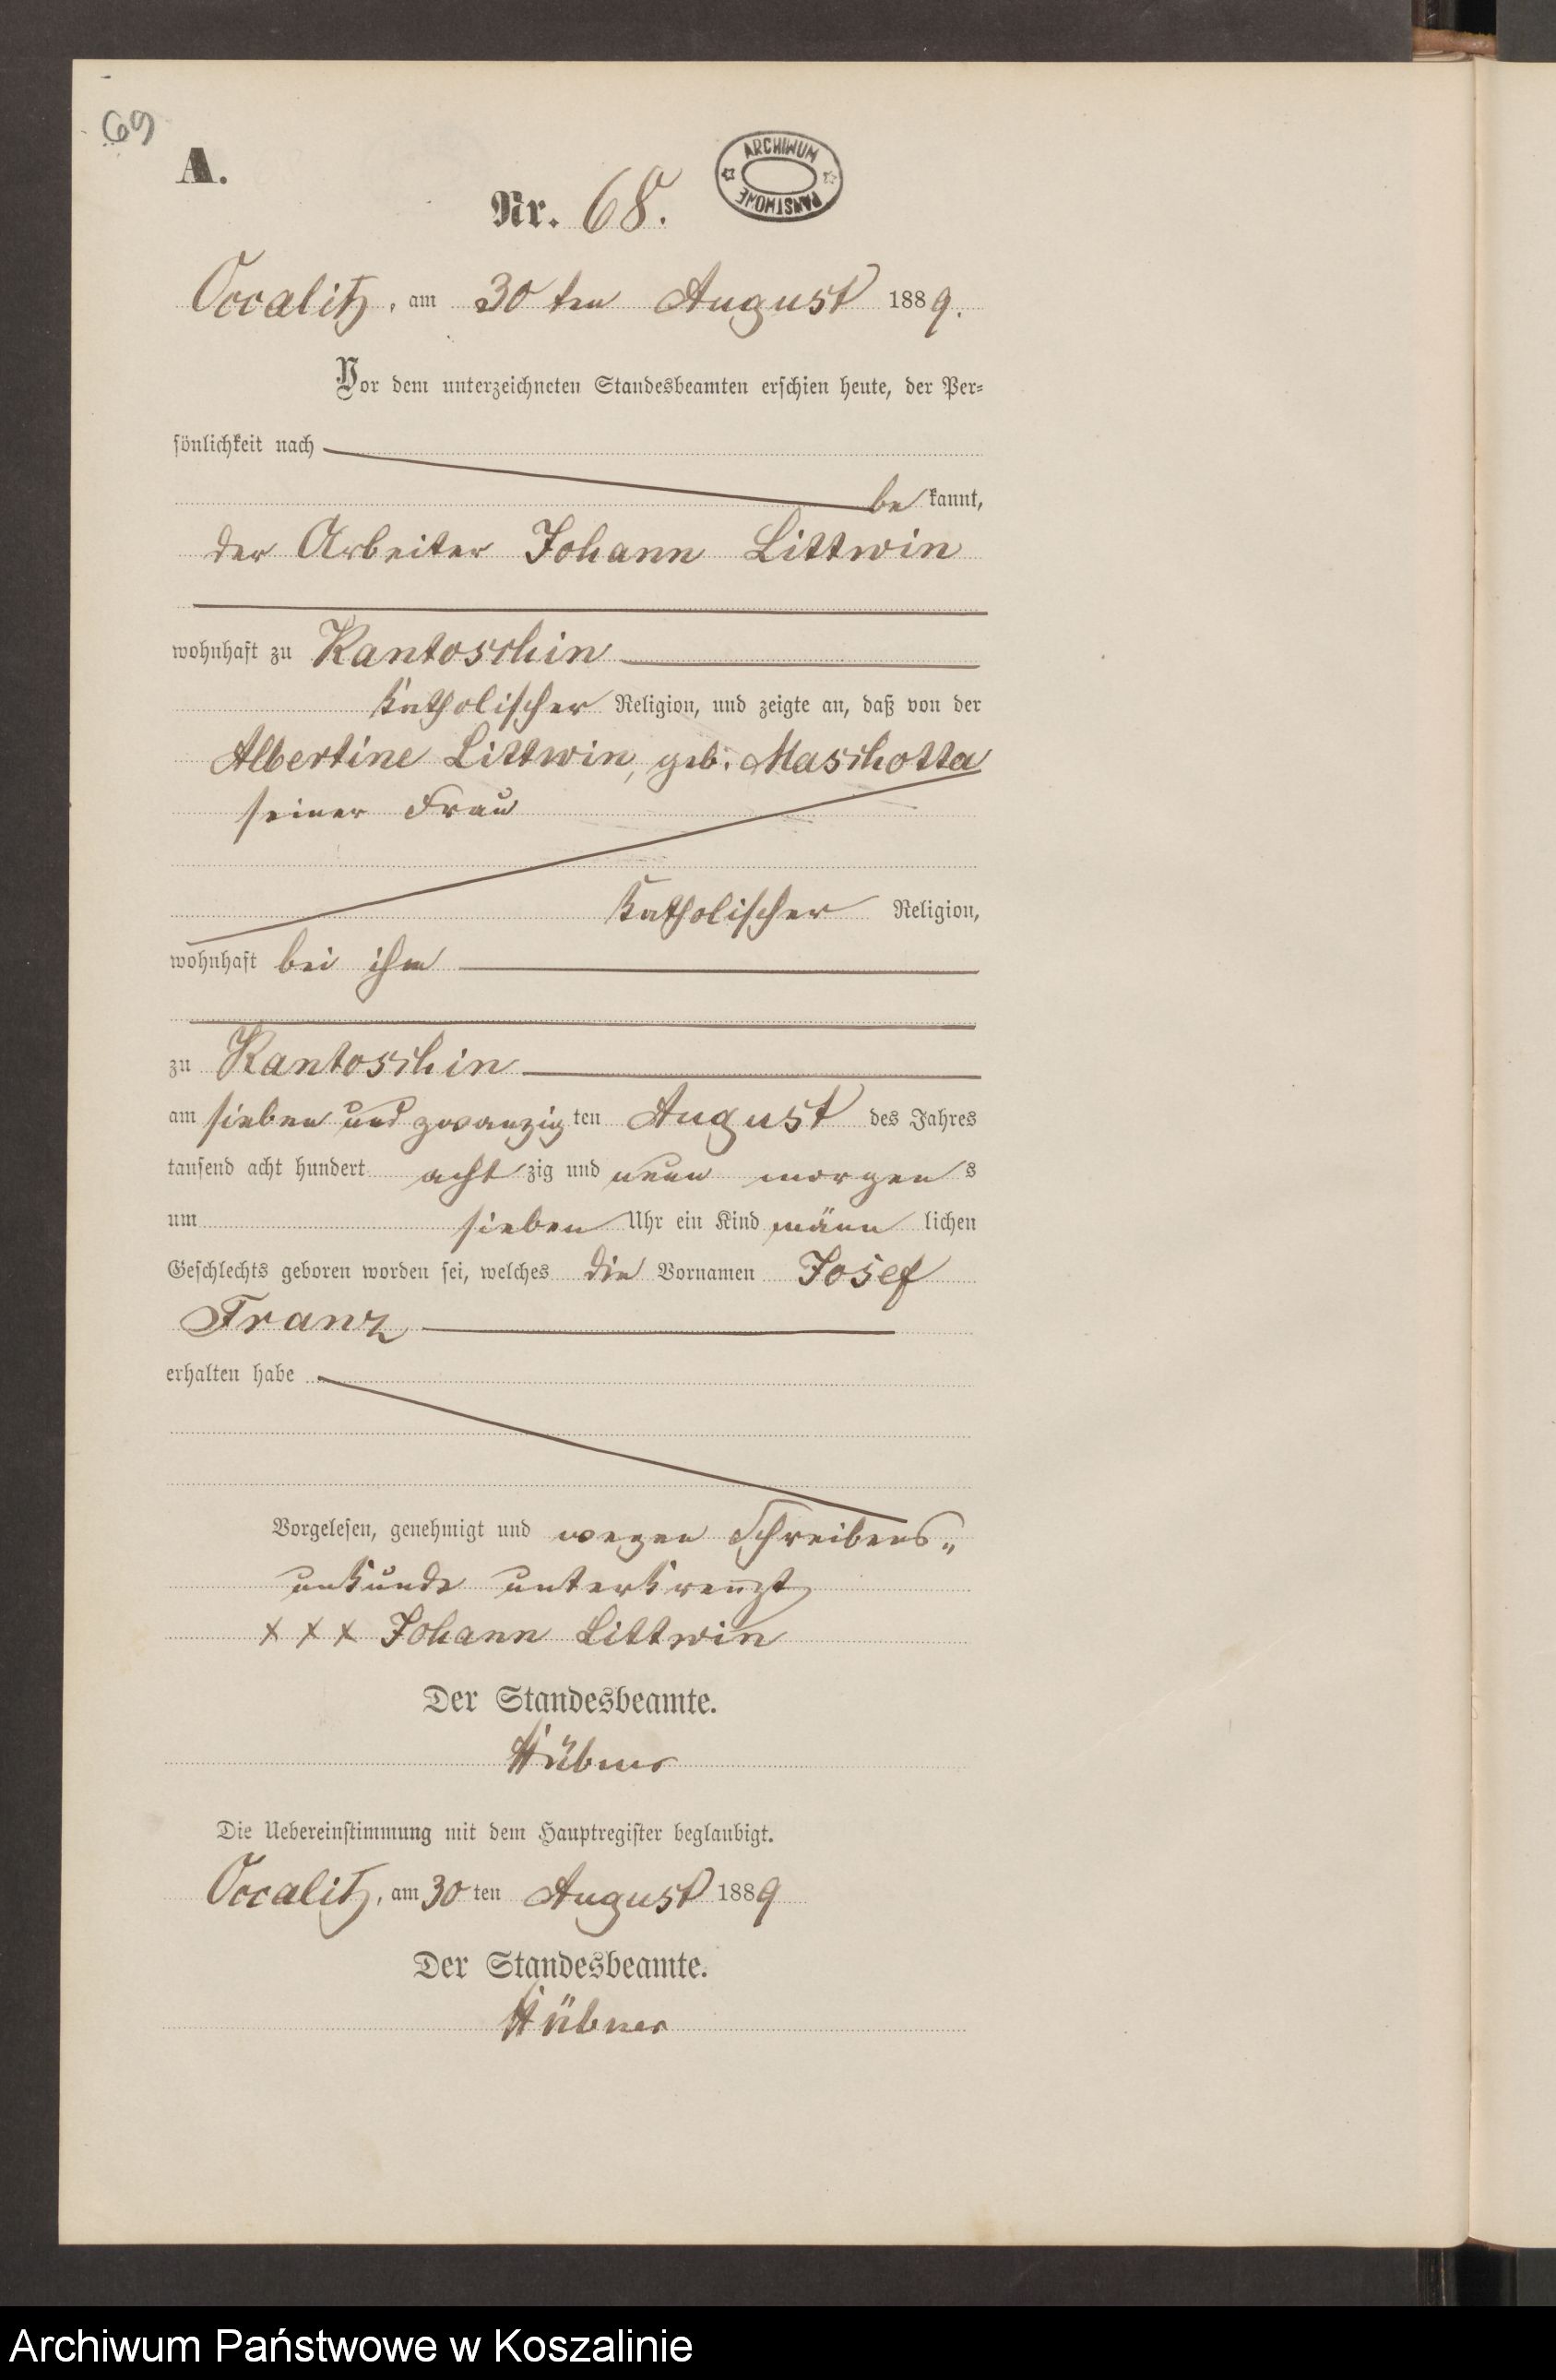 69
A.
ARCHIWUM PAŃSTWOWE
Nr. 68.
Occalitz, am 30ten August 1889.
Vor dem unterzeichneten Standesbeamten erschien heute, der Per-
sönlichkeit nach
bekannt,
der Arbeiter Johann Littwin
wohnhaft zu Kantoschin
katholischer Religion, und zeigte an, daß von der
Albertine Littwin, geb. Maschotta
seiner Frau
katholischer Religion,
wohnhaft bei ihm
zu Kantoschin
am sieben und zwanzigten August des Jahres
tausend acht hundert achtzig und neun morgens
um sieben Uhr ein Kind männlichen
Geschlechts geboren worden sei, welches die Vornamen Josef
Franz
erhalten habe
Vorgelesen, genehmigt und wegen Schreibens„
unkunde unterkreuzt
x x x Johann Littwin
Der Standesbeamte.
Hübner
Die Uebereinstimmung mit dem Hauptregister beglaubigt.
Occalitz, am 30ten August 1889
Der Standesbeamte.
Hübner
Archiwum Państwowe w Koszalinie